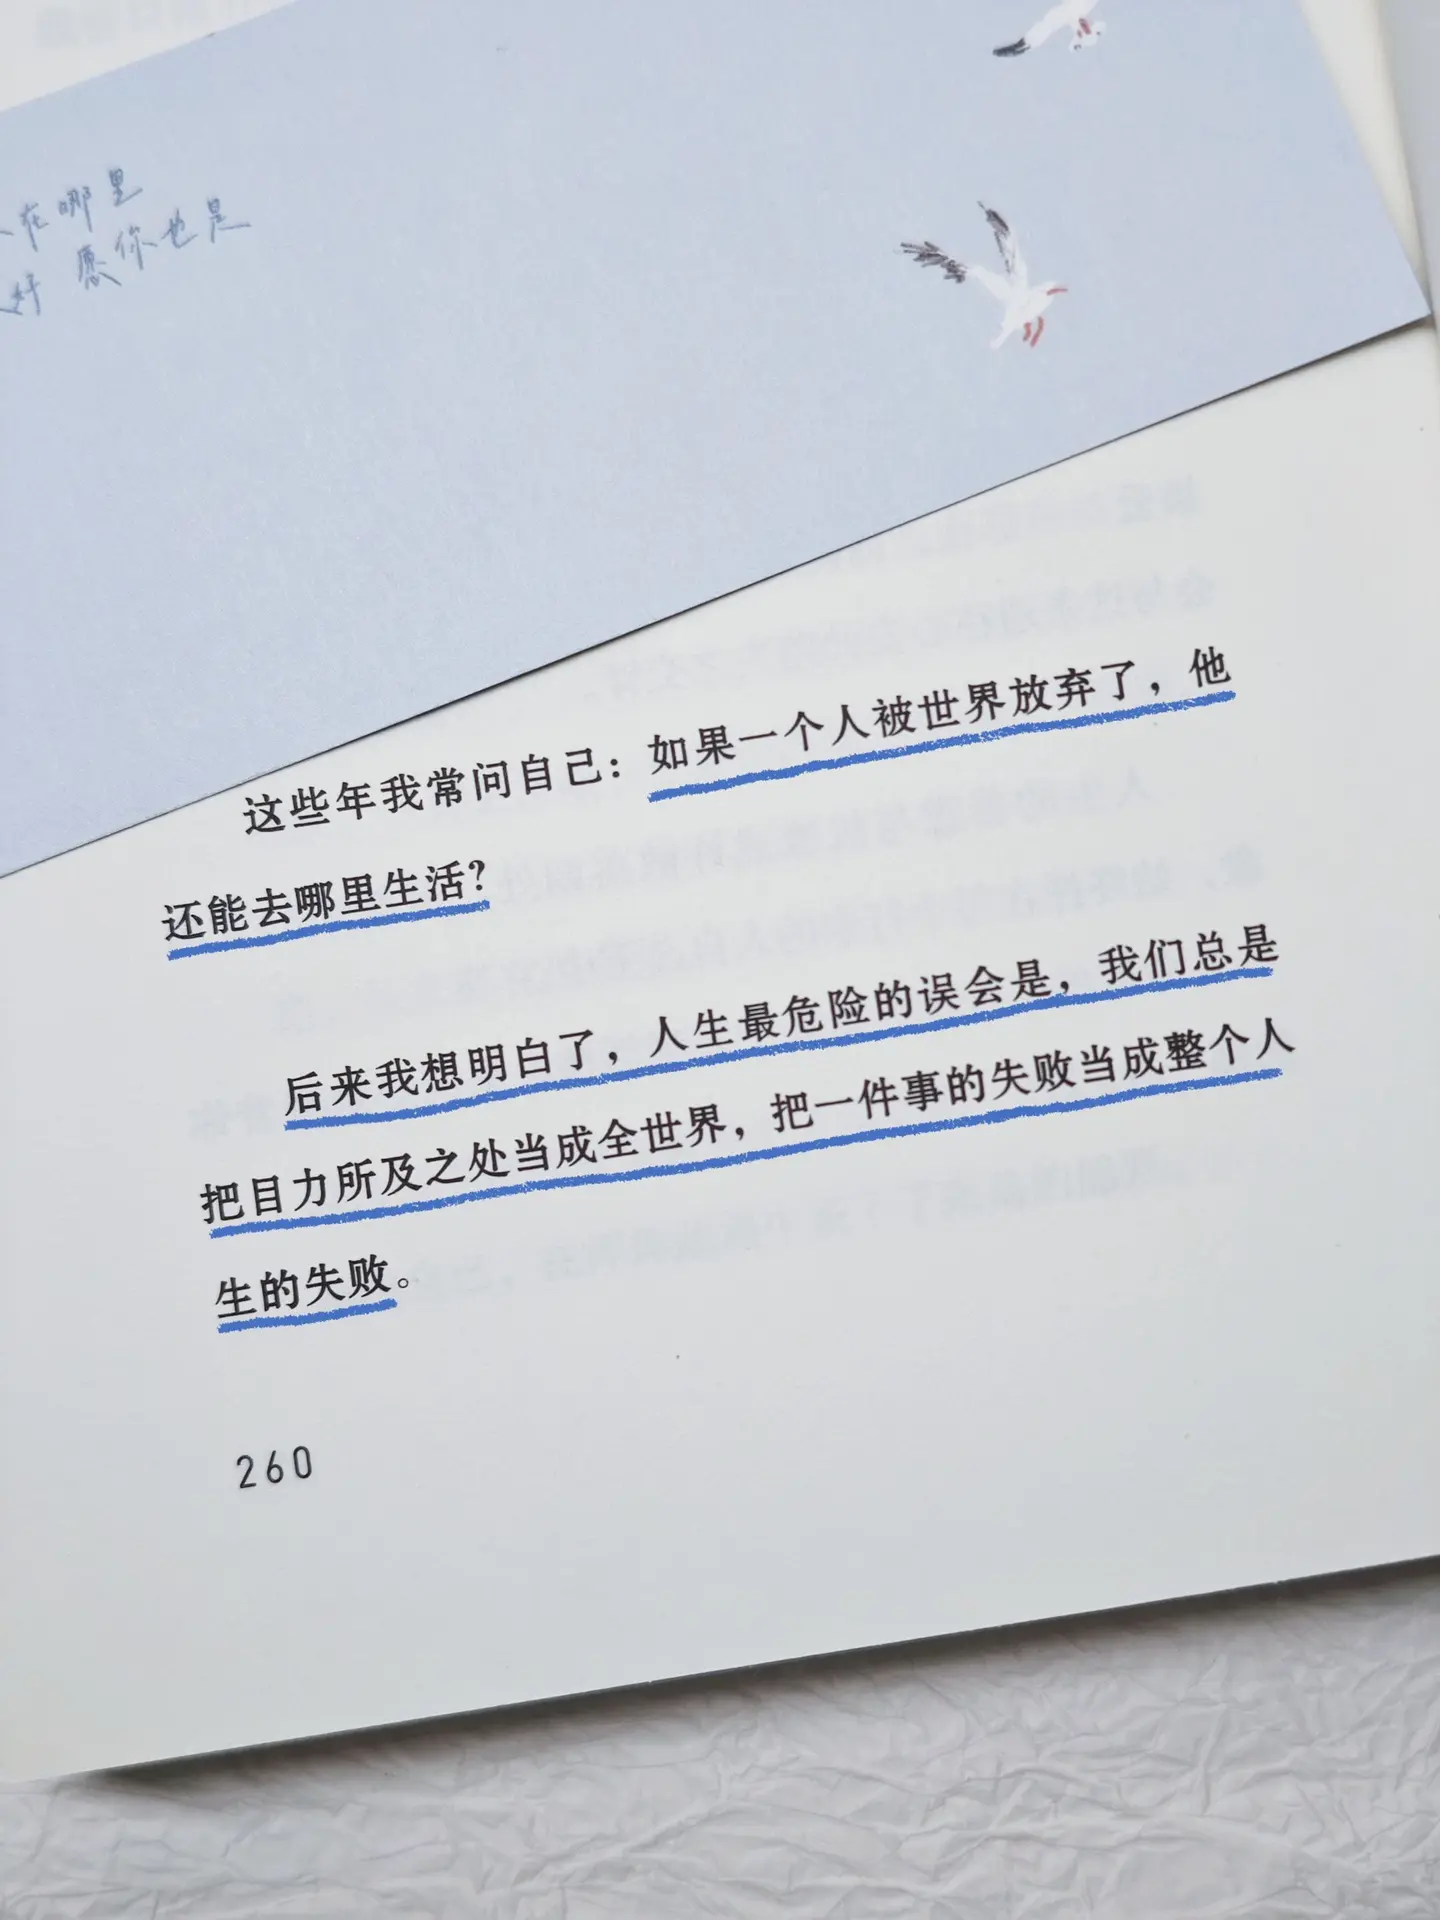 在哪里
好 愿你也是
这些年我常问自己：如果一个人被世界放弃了，他
还能去哪里生活？
后来我想明白了，人生最危险的误会是，我们总是
把目力所及之处当成全世界，把一件事的失败当成整个人
生的失败。
260